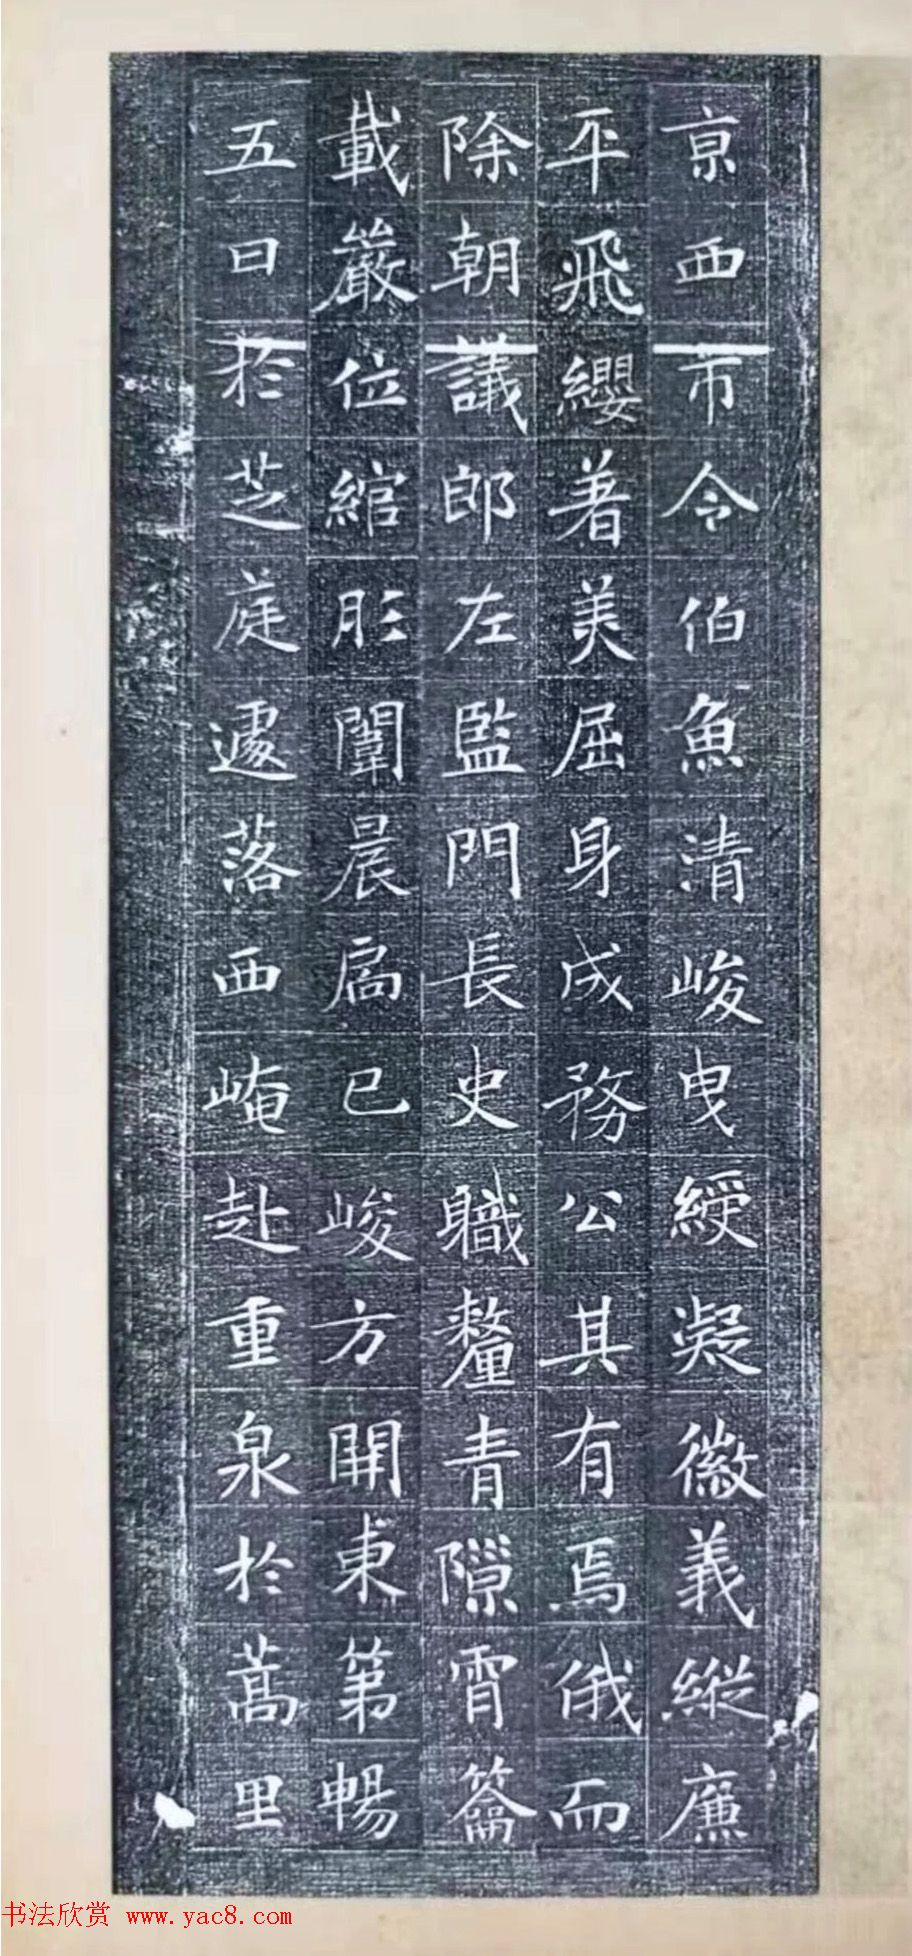 京西市令伯魚清峻曳綬凝徽義縱廉
平飛纓著美屈身成務公其有焉俄而
除朝議郎左監門長史職釐青隙霄籥
載嚴位綰彤闈晨扃已峻方開東第暢
五日於芝庭遽落西崦赴重泉於蒿里
书法欣赏 www.yac8.com